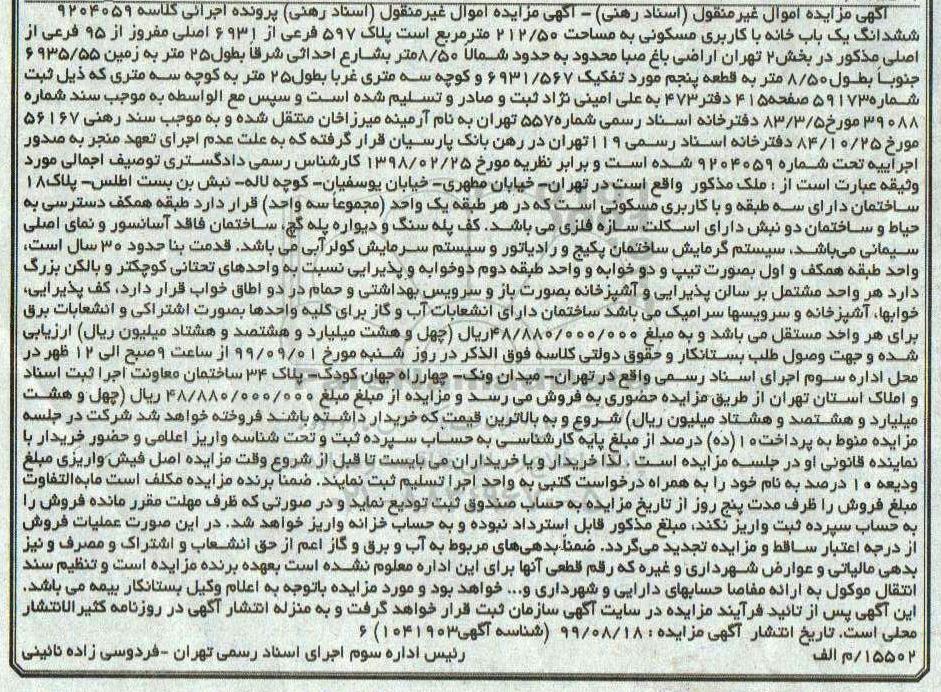 آگهی مزایده اموال غیرمنقول (اسناد رهنی) – آگهی مزایده اموال غیرمنقول (اسناد رهنی) پرونده اجرائی کلاسه ۹۲۰۴۰۵۹
ششدانگ یک باب خانه با کاربری مسکونی به مساحت ۲۱۲/۵۰ مترمربع است پلاک ۵۹۷ فرعی از ۶۹۳۱ اصلی مفروز از ۹۵ فرعی از
اصلی مذکور در بخش۲ تهران اراضی باغ صبا محدود به حدود شمالا ۸/۵۰متر بشارع احداثی شرقا بطول۲۵ متر به زمین ۶۹۳۵/۵۵
جنوباً بطول ۸/۵۰ متر به قطعه پنجم مورد تفکیک ۶۹۳۱/۵۶۷ و کوچه سه متری غربا بطول۲۵ متر به کوچه سه متری که ذیل ثبت
شماره۵۹۱۷۳ صفحه۴۱۵ دفتر۴۷۳ به علی امینی نژاد ثبت و صادر و تسلیم شده است و سپس مع الواسطه به موجب سند شماره
۳۹۰۸۸ مورخ۸۳/۳/۵ دفترخانه اسناد رسمی شماره۵۵۷ تهران به نام آرمینه میرزاخان منتقل شده و به موجب سند رهنی ۵۶۱۶۷
مورخ ۸۴/۱۰/۲۵ دفترخانه اسناد رسمی ۱۱۹تهران در رهن بانک پارسیان قرار گرفته که به علت عدم اجرای تعهد منجر به صدور
اجراییه تحت شماره ۹۲۰۴۰۵۹ شده است و برابر نظریه مورخ ۱۳۹۸/۰۲/۲۵ کارشناس رسمی دادگستری توصیف اجمالی مورد
وثیقه عبارت است از : ملک مذکور واقع است در تهران– خیابان مطهری– خیابان یوسفیان– کوچه لاله– نبش بن بست اطلس– پلاک۱۸
ساختمان دارای سه طبقه و با کاربری مسکونی است که در هر طبقه یک واحد (مجموعا سه واحد) قرار دارد طبقه همکف دسترسی به
حیاط و ساختمان دو نبش دارای اسکلت سازه فلزی می باشد. کف پله سنگ و دیواره پله گچ، ساختمان فاقد آسانسور و نمای اصلی
سیمانی می‌باشد. سیستم گرمایش ساختمان پکیج و رادیاتور و سیستم سرمایش کولرآبی می باشد. قدمت بنا حدود ۳۰ سال است،
واحد طبقه همکف و اول بصورت تیپ و دو خوابه و واحد طبقه دوم دوخوابه و پذیرایی نسبت به واحدهای تحتانی کوچکتر و بالکن بزرگ
دارد هر واحد مشتمل بر سالن پذیرایی و آشپزخانه بصورت باز و سرویس بهداشتی و حمام در دو اطاق خواب قرار دارد، کف پذیرایی،
خوابها، آشپزخانه و سرویسها سرامیک می باشد ساختمان دارای انشعابات آب و گاز برای کلیه واحدها بصورت اشتراکی و انشعابات برق
برای هر واحد مستقل می باشد و به مبلغ ۴۸/۸۸۰/۰۰۰/۰۰۰ریال (چهل و هشت میلیارد و هشتصد و هشتاد میلیون ریال) ارزیابی
شده و جهت وصول طلب بستانکار و حقوق دولتی کلاسه فوق الذکر در روز شنبه مورخ ۹۹/۰۹/۰۱ از ساعت ۹صبح الی ۱۲ ظهر در
محل اداره سوم اجرای اسناد رسمی واقع در تهران– میدان ونک– چهارراه جهان کودک– پلاک ۳۴ ساختمان معاونت اجرا ثبت اسناد
و املاک استان تهران از طریق مزایده حضوری به فروش می رسد و مزایده از مبلغ مبلغ ۴۸/۸۸۰/۰۰۰/۰۰۰ ریال (چهل و هشت
میلیارد و هشتصد و هشتاد میلیون ریال) شروع و به بالاترین قیمت که خریدار داشته باشند فروخته خواهد شد شرکت در جلسه
مزایده منوط به پرداخت۱۰ (ده) درصد از مبلغ پایه کارشناسی به حساب سپرده ثبت و تحت شناسه واریز اعلامی و حضور خریدار یا
نماینده قانونی او در جلسه مزایده است . لذا خریدار و یا خریداران می بایست تا قبل از شروع وقت مزایده اصل فیش واریزی مبلغ
ودیعه ۱۰ درصد به نام خود را به همراه درخواست کتبی به واحد اجرا تسلیم ثبت نمایند. ضمنا برنده مزایده مکلف است مابه‌التفاوت
مبلغ فروش را ظرف مدت پنج روز از تاریخ مزایده به حساب صندوق ثبت تودیع نماید و در صورتی که ظرف مهلت مقرر مانده فروش را
به حساب سپرده ثبت واریز نکند، مبلغ مذکور قابل استرداد نبوده و به حساب خزانه واریز خواهد شد. در این صورت عملیات فروش
از درجه اعتبار ساقط و مزایده تجدید می‌گردد. ضمنأبدهی‌های مربوط به آب و برق و گاز اعم از حق انشعاب و اشتراک و مصرف و نیز
بدهی مالیاتی و عوارض شهرداری و غیره که رقم قطعی آنها برای این اداره معلوم نشده است بعهده برنده مزایده است و تنظیم سند
انتقال موکول به ارائه مفاصا حسابهای دارایی و شهرداری و... خواهد بود و مورد مزایده باتوجه به اعلام وکیل بستانکار بیمه می باشد.
این آگهی پس از تائید فرآیند مزایده در سایت آگهی سازمان ثبت قرار خواهد گرفت و به منزله انتشار آگهی در روزنامه کثیرالانتشار
محلی است. تاریخ انتشار آگهی مزایده : ۹۹/۰۸/۱۸ (شناسه آگهی۱۰۴۱۹۰۳) ۶
۱۵۵۰۲/م الف رئیس اداره سوم اجرای اسناد رسمی تهران -فردوسی زاده نائینی